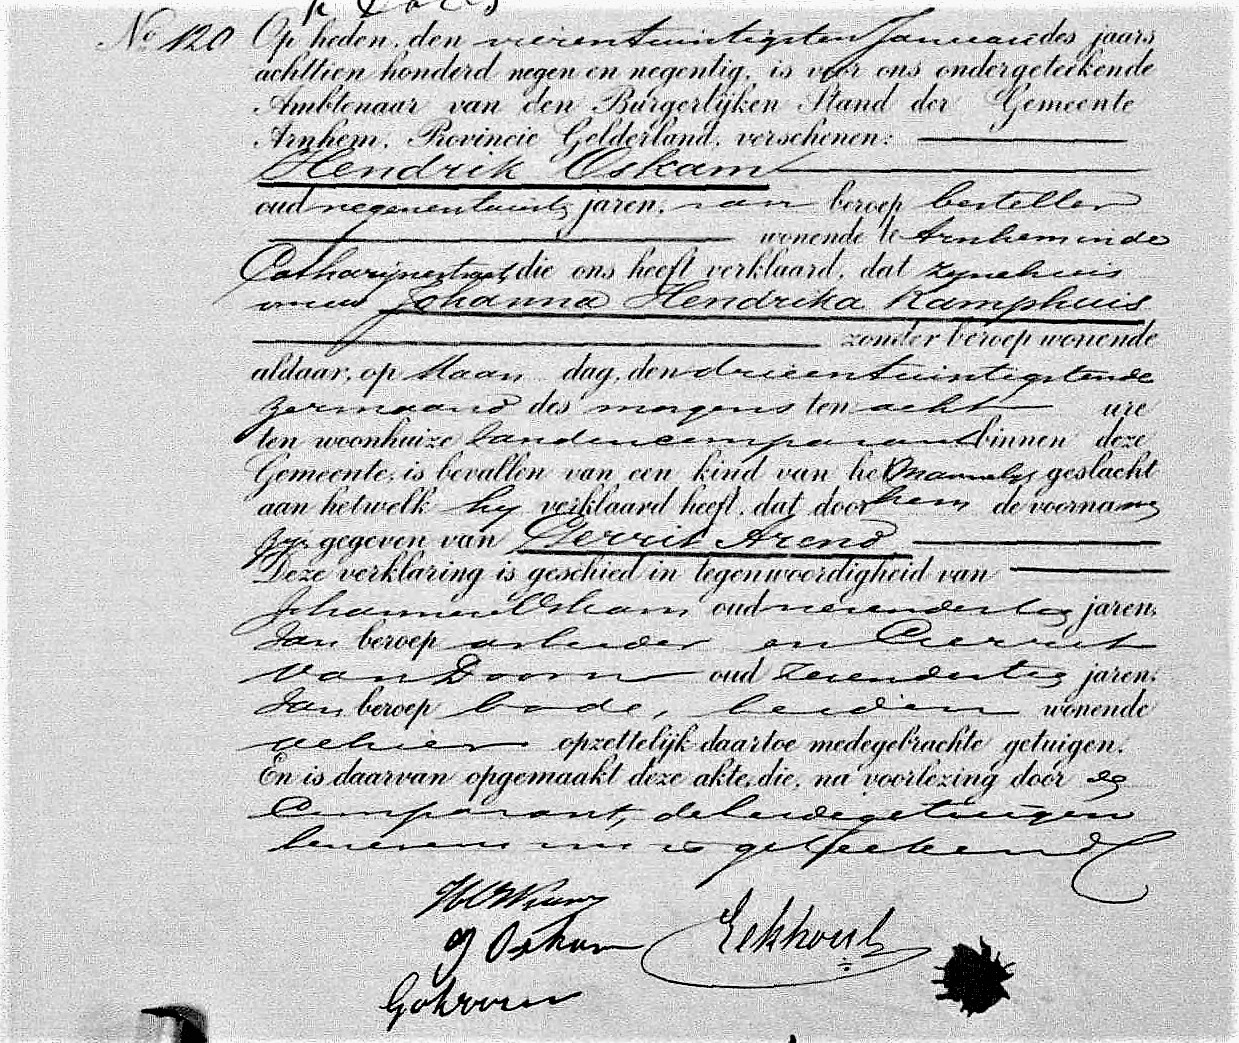 No 120 Op heden, den vierentwintigsten Januari des jaars
achttien honderd negen en negentig, is voor ons ondergeteekende
Ambtenaar van den Burgerlijken Stand der Gemeente
Arnhem, Provincie Gelderland, verschenen:
Hendrik Oskam
oud negenentwintig jaren, van beroep besteller
wonende te Arnhem in de
Catharijnestraat, die ons heeft verklaard, dat zijne huis
vrouw Johanna Hendrika Kamphuis
zonder beroep wonende
aldaar, op Maan dag, den drieentwintigsten de
zer maand des morgens ten acht ure
ten woonhuize van den comparant binnen deze
Gemeente, is bevallen van een kind van het mannelijk geslacht
aan hetwelk hij verklaard heeft, dat door hem de voornamen
zijn gegeven van Gerrit Arend
Deze verklaring is geschied in tegenwoordigheid van
Johannes Oskam oud vierendertig jaren,
van beroep arbeider en Gerrit
van Doorn oud zesendertig jaren,
van beroep bode, beiden wonende
alhier opzettelijk daartoe medegebrachte getuigen.
En is daarvan opgemaakt deze akte, die, na voorlezing door de
Comparant, de beide getuigen
benevens ons is geteekend
H Oskam
J Oskam Eekhout
G v Doorn